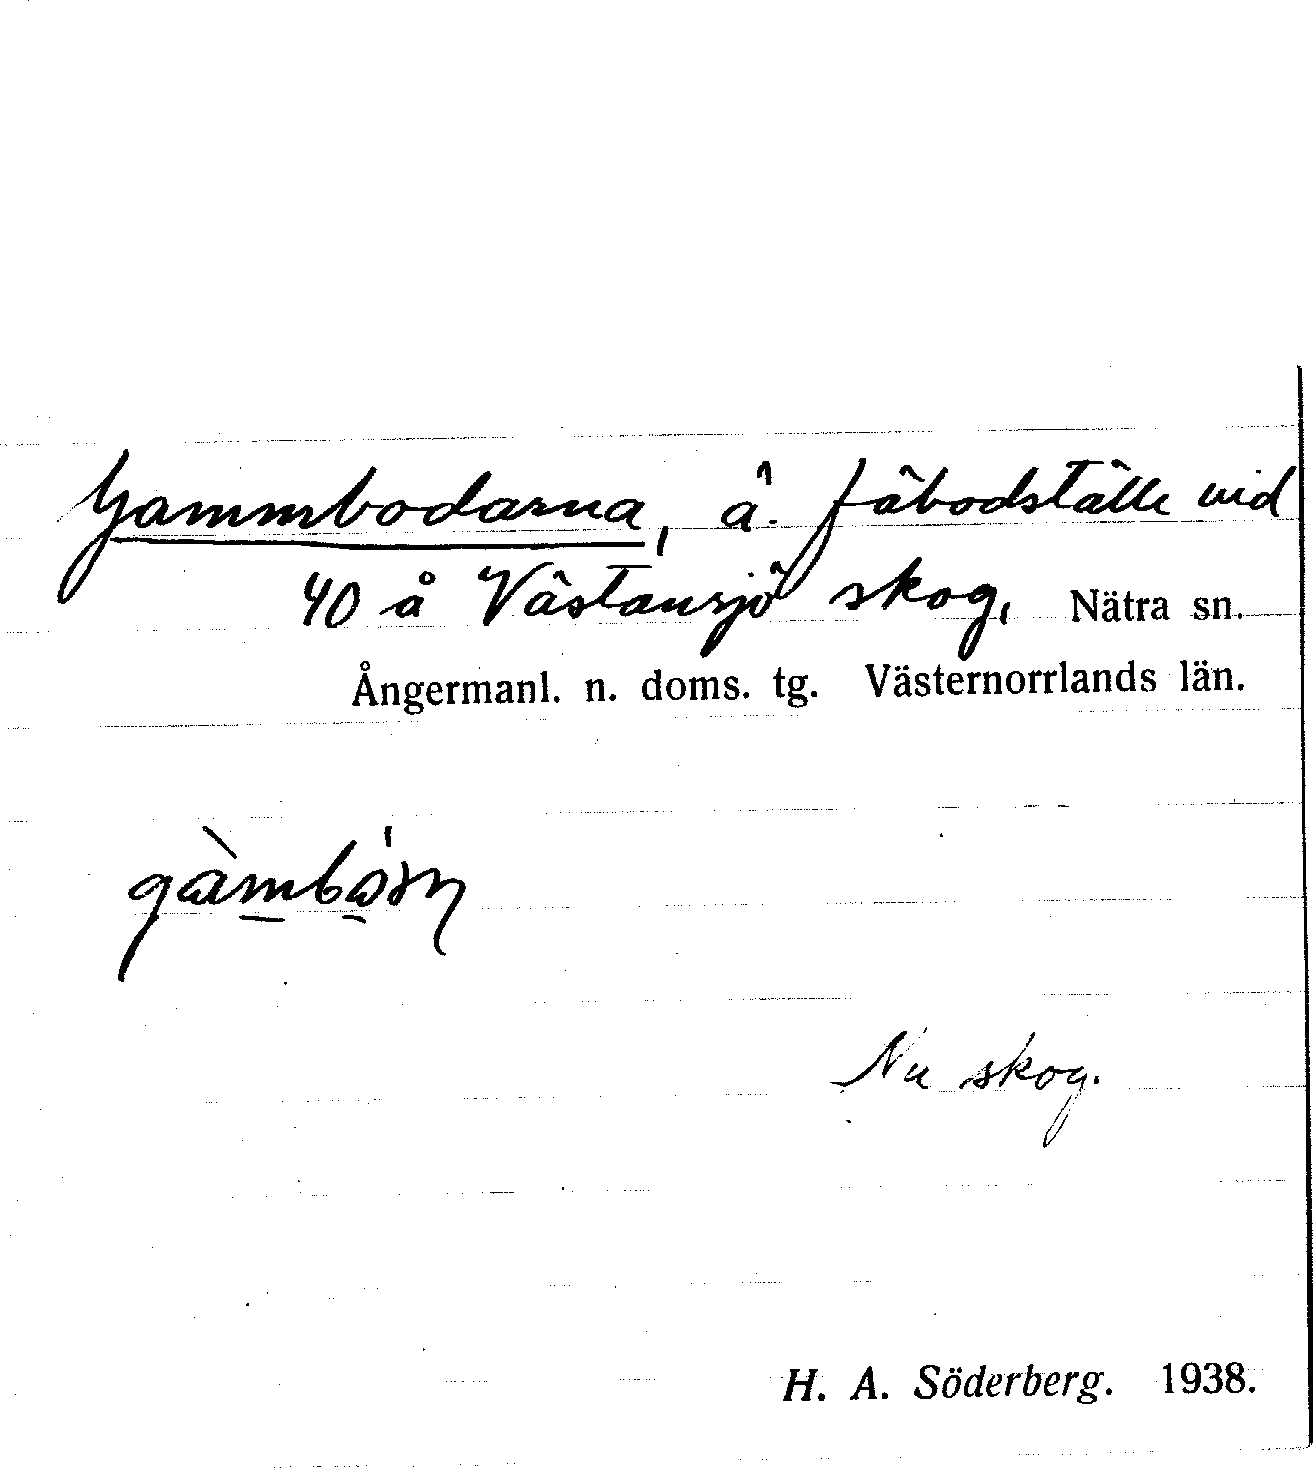 Gammbodarna, ä. fäbodställe vid
40 å Västansjö skog, Nätra sn.
Ångermanl. n. doms. tg. Västernorrlands län.
Nu skog.
H. A. Söderberg. 1938.